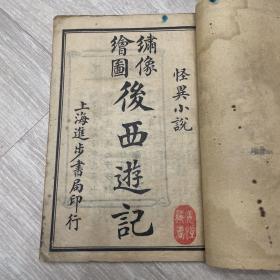 怪異小說
繡像
繪圖
後西遊記
上海進步書局印行